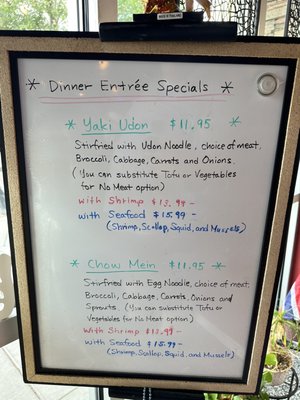 MADE IN THAILAND
* Dinner Entrée Specials *
* Yaki Udon $11.95 *
Stirfried with Udon Noodle, choice of meat,
Broccoli, Cabbage, Carrots and Onions.
(You can substitute Tofu or Vegetables
for No Meat option)
with Shrimp $13.99-
with Seafood $15.99-
(Shrimp, Scallop, Squid, and Mussels)
* Chow Mein $11.95 *
Stirfried with Egg Noodle, choice of meat,
Broccoli, Cabbage, Carrots, Onions and
Sprouts. (You can substitute Tofu or
Vegetables for No Meat option)
With Shrimp $13.99-
with Seafood $15.99-
(Shrimp, Scallop, Squid, and Mussels)